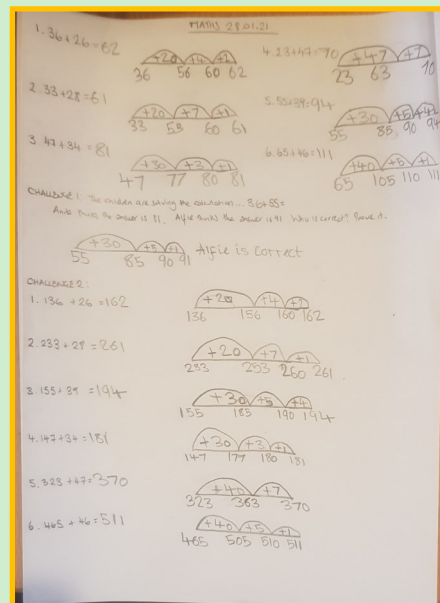 MATHS 28.01.21
1. 36+26=62
+20 +4 +2
36 56 60 62
2. 33+28=61
+20 +7 +1
33 53 60 61
3. 47+34=81
+30 +3 +1
47 77 80 81
4. 23+47=70
+47 +7
23 63 70
5. 55+39=94
+30 +5 +4
55 85 90 94
6. 65+46=111
+40 +5 +1
65 105 110 111
CHALLENGE 1: The children are solving the calculation... 36+55=
thinks the answer is 81. Alfie thinks the answer is 91. Who is correct? Prove it.
+30 +5 +1
55 85 90 91 Alfie is correct
CHALLENGE 2:
1. 136 +26 =162
+20 +4 +2
136 156 160 162
2. 233 +28 =261
+20 +7 +1
233 253 260 261
3. 155+39 =194
+30 +5 +4
155 185 190 194
4. 147+34 =181
+30 +3 +1
147 177 180 181
5. 323 +47=370
+40 +7
323 363 370
6. 465 +46=511
+40 +5 +1
465 505 510 511